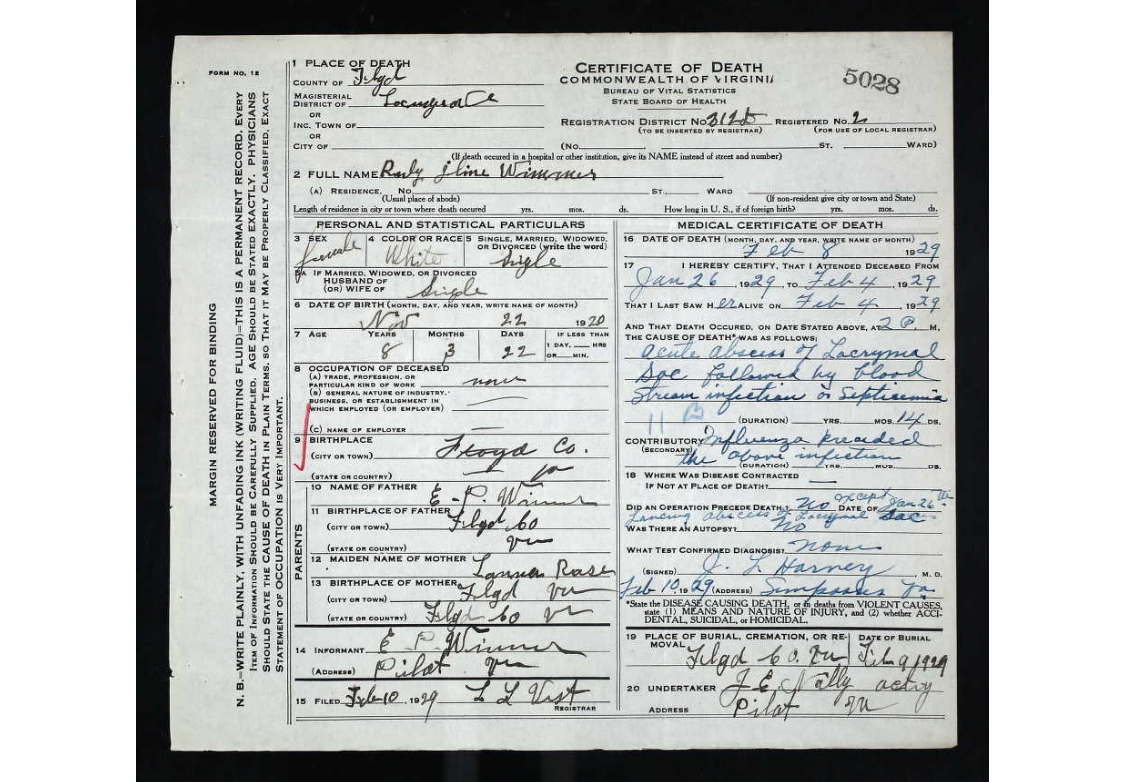 FORM NO. 12
MARGIN RESERVED FOR BINDING
N. B.—WRITE PLAINLY, WITH UNFADING INK (WRITING FLUID)—THIS IS A PERMANENT RECORD. EVERY
ITEM OF INFORMATION SHOULD BE CAREFULLY SUPPLIED. AGE SHOULD BE STATED EXACTLY. PHYSICIANS
SHOULD STATE THE CAUSE OF DEATH IN PLAIN TERMS, SO THAT IT MAY BE PROPERLY CLASSIFIED. EXACT
STATEMENT OF OCCUPATION IS VERY IMPORTANT.
1 PLACE OF DEATH
COUNTY OF Floyd
MAGISTERIAL
DISTRICT OF
OR
INC. TOWN OF
OR
CITY OF
CERTIFICATE OF DEATH
COMMONWEALTH OF VIRGINIA
BUREAU OF VITAL STATISTICS
STATE BOARD OF HEALTH
5028
REGISTRATION DISTRICT No. REGISTERED No. 2
(TO BE INSERTED BY REGISTRAR) (FOR USE OF LOCAL REGISTRAR)
(No. ST. WARD)
(If death occured in a hospital or other institution, give its NAME instead of street and number)
2 FULL NAME Wimmer
(A) RESIDENCE. No. ST., WARD
(Usual place of abode) (If non-resident give city or town and State)
Length of residence in city or town where death occurred yrs. mos. ds. How long in U. S., if of foreign birth? yrs. mos. ds.
PERSONAL AND STATISTICAL PARTICULARS
3 SEX 4 COLOR OR RACE 5 SINGLE, MARRIED, WIDOWED,
OR DIVORCED (write the word)
female White Single
5A IF MARRIED, WIDOWED, OR DIVORCED
HUSBAND OF
(OR) WIFE OF Single
6 DATE OF BIRTH (MONTH, DAY, AND YEAR, WRITE NAME OF MONTH)
Nov 22 1920
7 AGE YEARS MONTHS DAYS IF LESS THAN
1 DAY, HRS
OR MIN.
8 3 22
8 OCCUPATION OF DECEASED
(A) TRADE, PROFESSION, OR
PARTICULAR KIND OF WORK none
(B) GENERAL NATURE OF INDUSTRY,
BUSINESS, OR ESTABLISHMENT IN
WHICH EMPLOYED (OR EMPLOYER)
(C) NAME OF EMPLOYER
9 BIRTHPLACE
(CITY OR TOWN) Floyd Co.
(STATE OR COUNTRY) Va
PARENTS
10 NAME OF FATHER E. P. Wimmer
11 BIRTHPLACE OF FATHER
(CITY OR TOWN) Floyd Co
(STATE OR COUNTRY) Va
12 MAIDEN NAME OF MOTHER
13 BIRTHPLACE OF MOTHER
(CITY OR TOWN) Floyd Va
(STATE OR COUNTRY) Floyd Co Va
14 INFORMANT E P. Wimmer
(ADDRESS) Pilot Va
15 FILED Feb 10, 1929 L L Vest
REGISTRAR
MEDICAL CERTIFICATE OF DEATH
16 DATE OF DEATH (MONTH, DAY, AND YEAR, WRITE NAME OF MONTH)
Feb 8 1929
17 I HEREBY CERTIFY, THAT I ATTENDED DECEASED FROM
Jan 26, 1929, TO Feb 4, 1929
THAT I LAST SAW Her ALIVE ON Feb 4, 1929
AND THAT DEATH OCCURED, ON DATE STATED ABOVE, AT 2 P M.
THE CAUSE OF DEATH* WAS AS FOLLOWS:
Acute abscess of Lacrymal
Sac followed by blood
Stream infection or Septicemia
(DURATION) YRS. MOS. 14 DS.
CONTRIBUTORY Influenza preceded
(SECONDARY) the above infection
(DURATION) YRS. MOS. DS.
18 WHERE WAS DISEASE CONTRACTED
IF NOT AT PLACE OF DEATH?
DID AN OPERATION PRECEDE DEATH? No except DATE OF Jan 26th
Lancing abscess of Lacrymal Sac
WAS THERE AN AUTOPSY? No
WHAT TEST CONFIRMED DIAGNOSIS? None
(SIGNED) J. L Harney, M. D.
Feb 10, 1929 (ADDRESS) Simpsons Va
*State the DISEASE CAUSING DEATH, or in deaths from VIOLENT CAUSES,
state (1) MEANS AND NATURE OF INJURY, and (2) whether ACCI-
DENTAL, SUICIDAL, or HOMICIDAL.
19 PLACE OF BURIAL, CREMATION, OR RE-
MOVAL DATE OF BURIAL
Floyd Co. Va Feb 9 1929
20 UNDERTAKER J. E. Nolly
ADDRESS Pilot Va